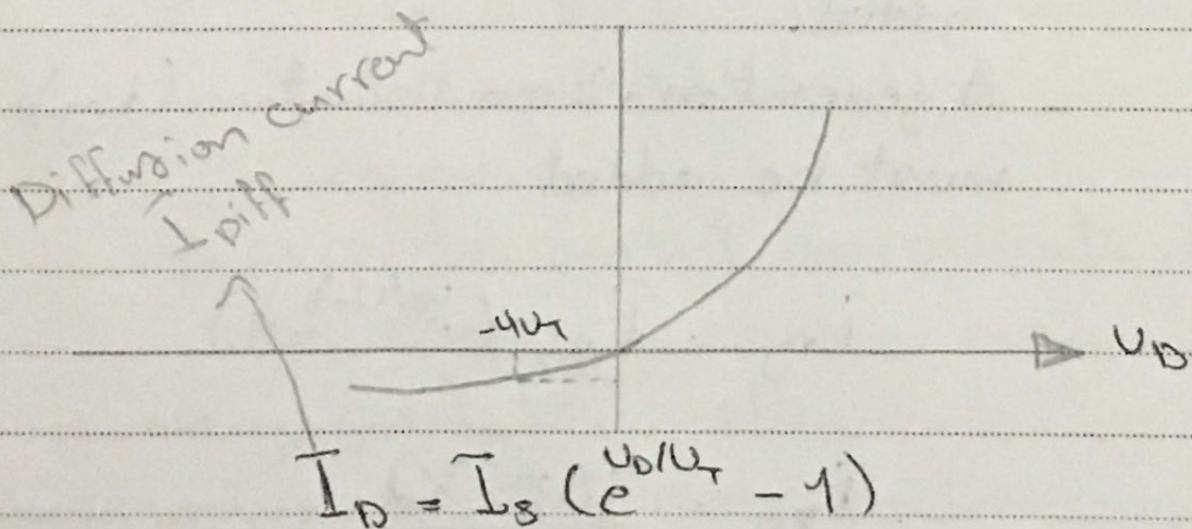 Diffusion current
I Diff
-4U_T
U_D
I_D = I_S (e^{U_D/U_T} - 1)